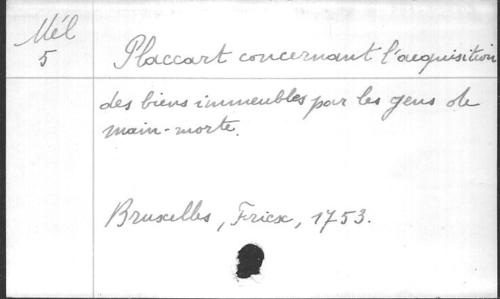 Mél
5
Placcart concernant l'acquisition
des biens immeubles par les gens de
main-morte.
Bruxelles, Fricx, 1753.